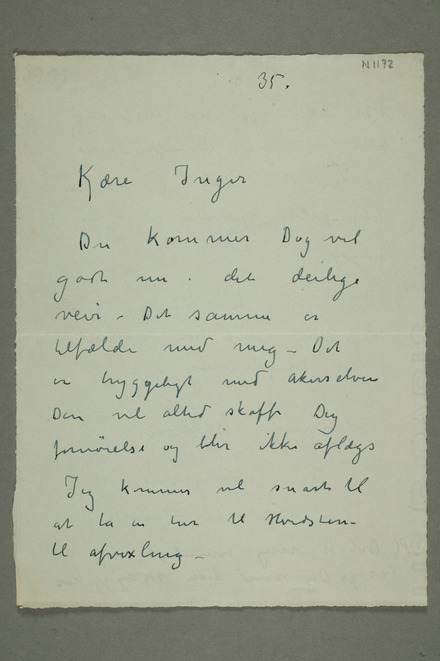 N1172
35.
Kjære Inger
Du kommer Dog vel
godt nu i det deilige
veir – Det samme er
tilfælde med mig – Det
er hyggeligt med akerselven
Den vil altid skaffe Dig
fornöielse og blir ikke aflægs
Jeg kommer vel snart til
at ta en tur til Hvidsten –
til afvexling –